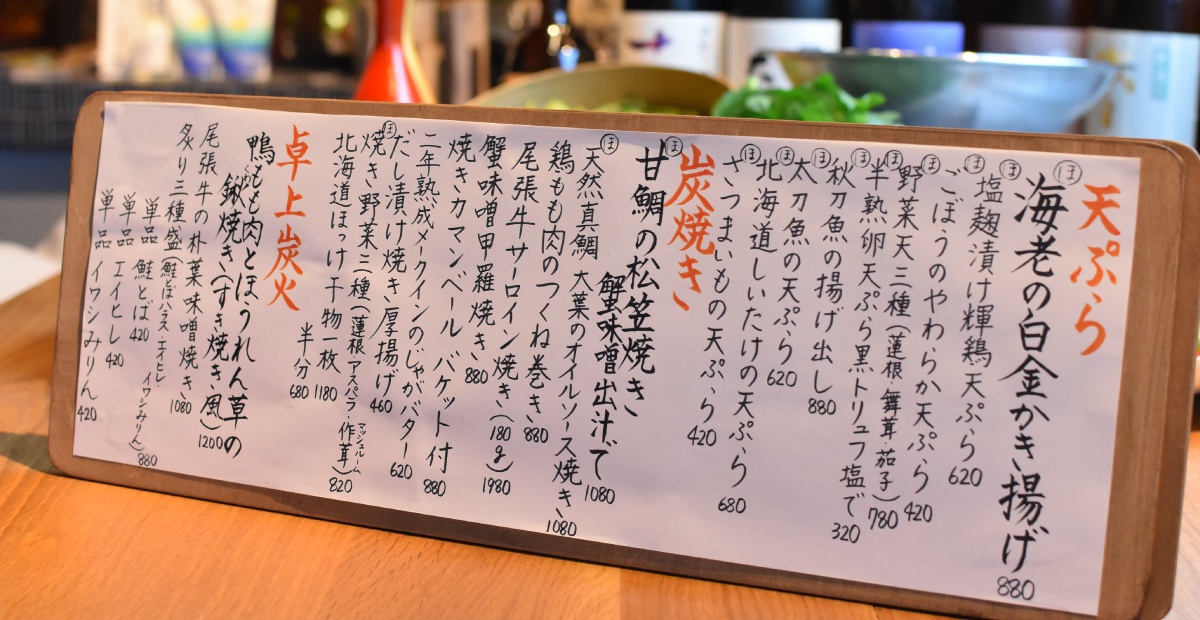 天ぷら
ほ 海老の白金かき揚げ 880
ほ 塩麹漬け輝鶏天ぷら 620
ほ ごぼうのやわらか天ぷら 420
ほ 野菜天三種(蓮根・舞茸・茄子) 780
ほ 半熟卵天ぷら黒トリュフ塩で 320
ほ 秋刀魚の揚げ出し 880
ほ 太刀魚の天ぷら 620
ほ 北海道しいたけの天ぷら 680
ほ さつまいもの天ぷら 420
炭焼き
ほ 甘鯛の松笠焼き
蟹味噌出汁で 1080
ほ 天然真鯛 大葉のオイルソース焼き 1080
鶏もも肉のつくね巻き 880
尾張牛サーロイン焼き(180g) 1980
蟹味噌甲羅焼き 880
焼きカマンベール バケット付 880
二年熟成メークインのじゃがバター 620
ほ だし漬け焼き厚揚げ 460
焼き野菜三種(蓮根・アスパラ・マッシュルーム・作茸) 820
北海道ほっけ干物一枚 1180
半分 680
卓上炭火
鴨もも肉とほうれん草の
鍬焼き(すき焼き風) 1200
尾張牛の朴葉味噌焼き 1080
炙り三種盛(鮭とば・エイヒレ・イワシみりん) 880
単品 鮭とば 420
単品 エイヒレ 420
単品 イワシみりん 420